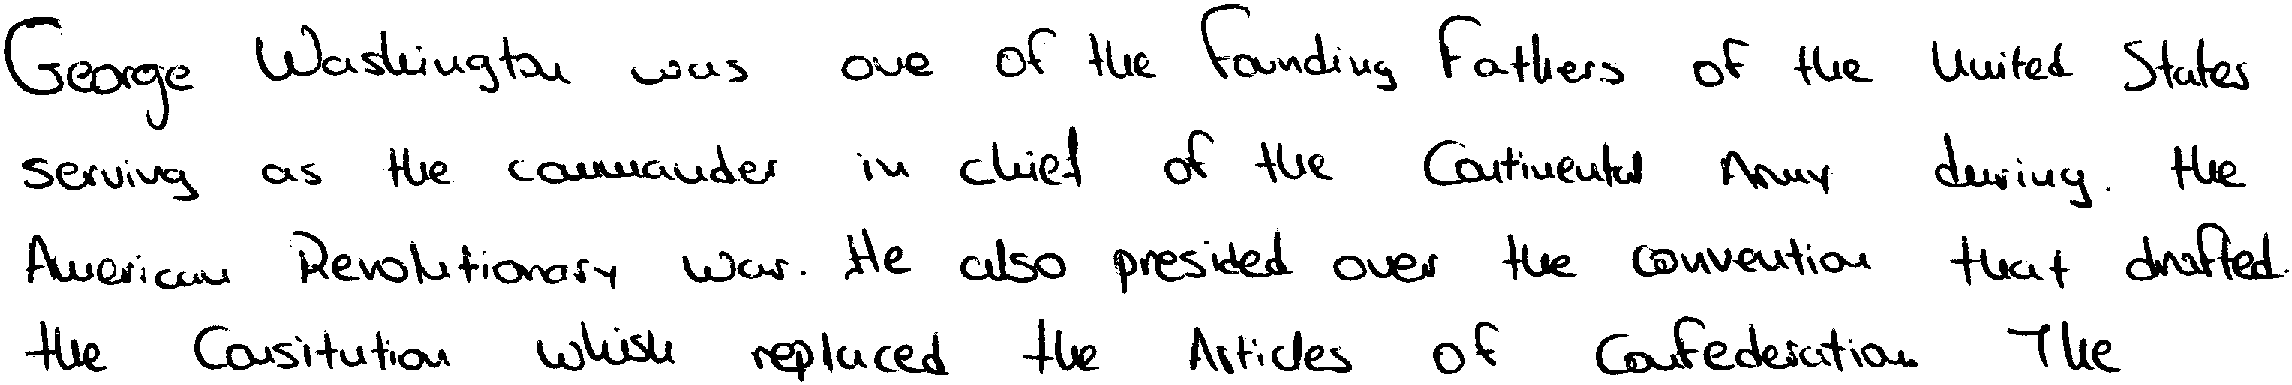 George Washington was one of the Founding Fathers of the United States
serving as the commander in chief of the Continental Army during. the
American Revolutionary War. He also presided over the convention that drafted.
the Consitution whish replaced the Articles of Confederation The